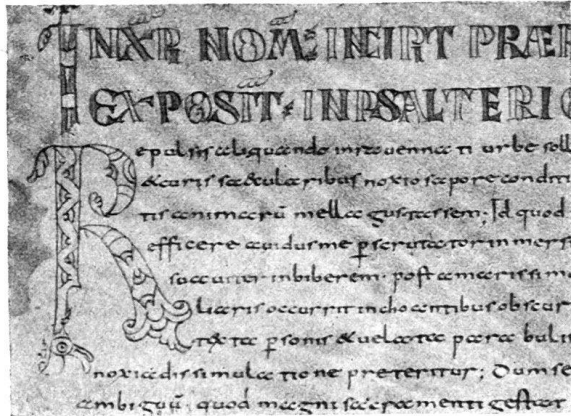 IN XPI NOM: INCIPIT PRÆF
EXPOSIT: INPSALTERIO
Repulsis aliquando inrauennati urbe soll
&curis sæcularibus noxio sapore conditi
tis animarū mella gustassem; Id quod
efficere auidus me ꝑscrutator inmersi
suauiter inbiberem post amarissima
liaris occurrit inchoantibus obscur
texta ꝑsonis &uelata parabulis
noxia dissimulatione preteritur; Dum se
ambiguū quod magni sacramenti gestat